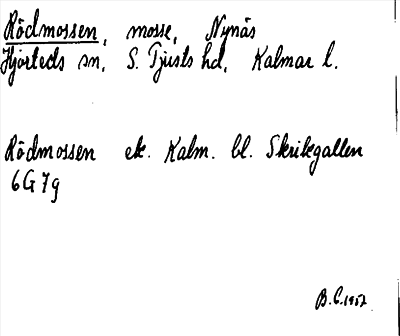 Rödmossen, mosse, Nynäs
Hjorteds sn, S. Tjusts hd, Kalmar l.
Rödmossen ek. Kalm. bl. Skrikegallen
6G7g
B.C. 1957